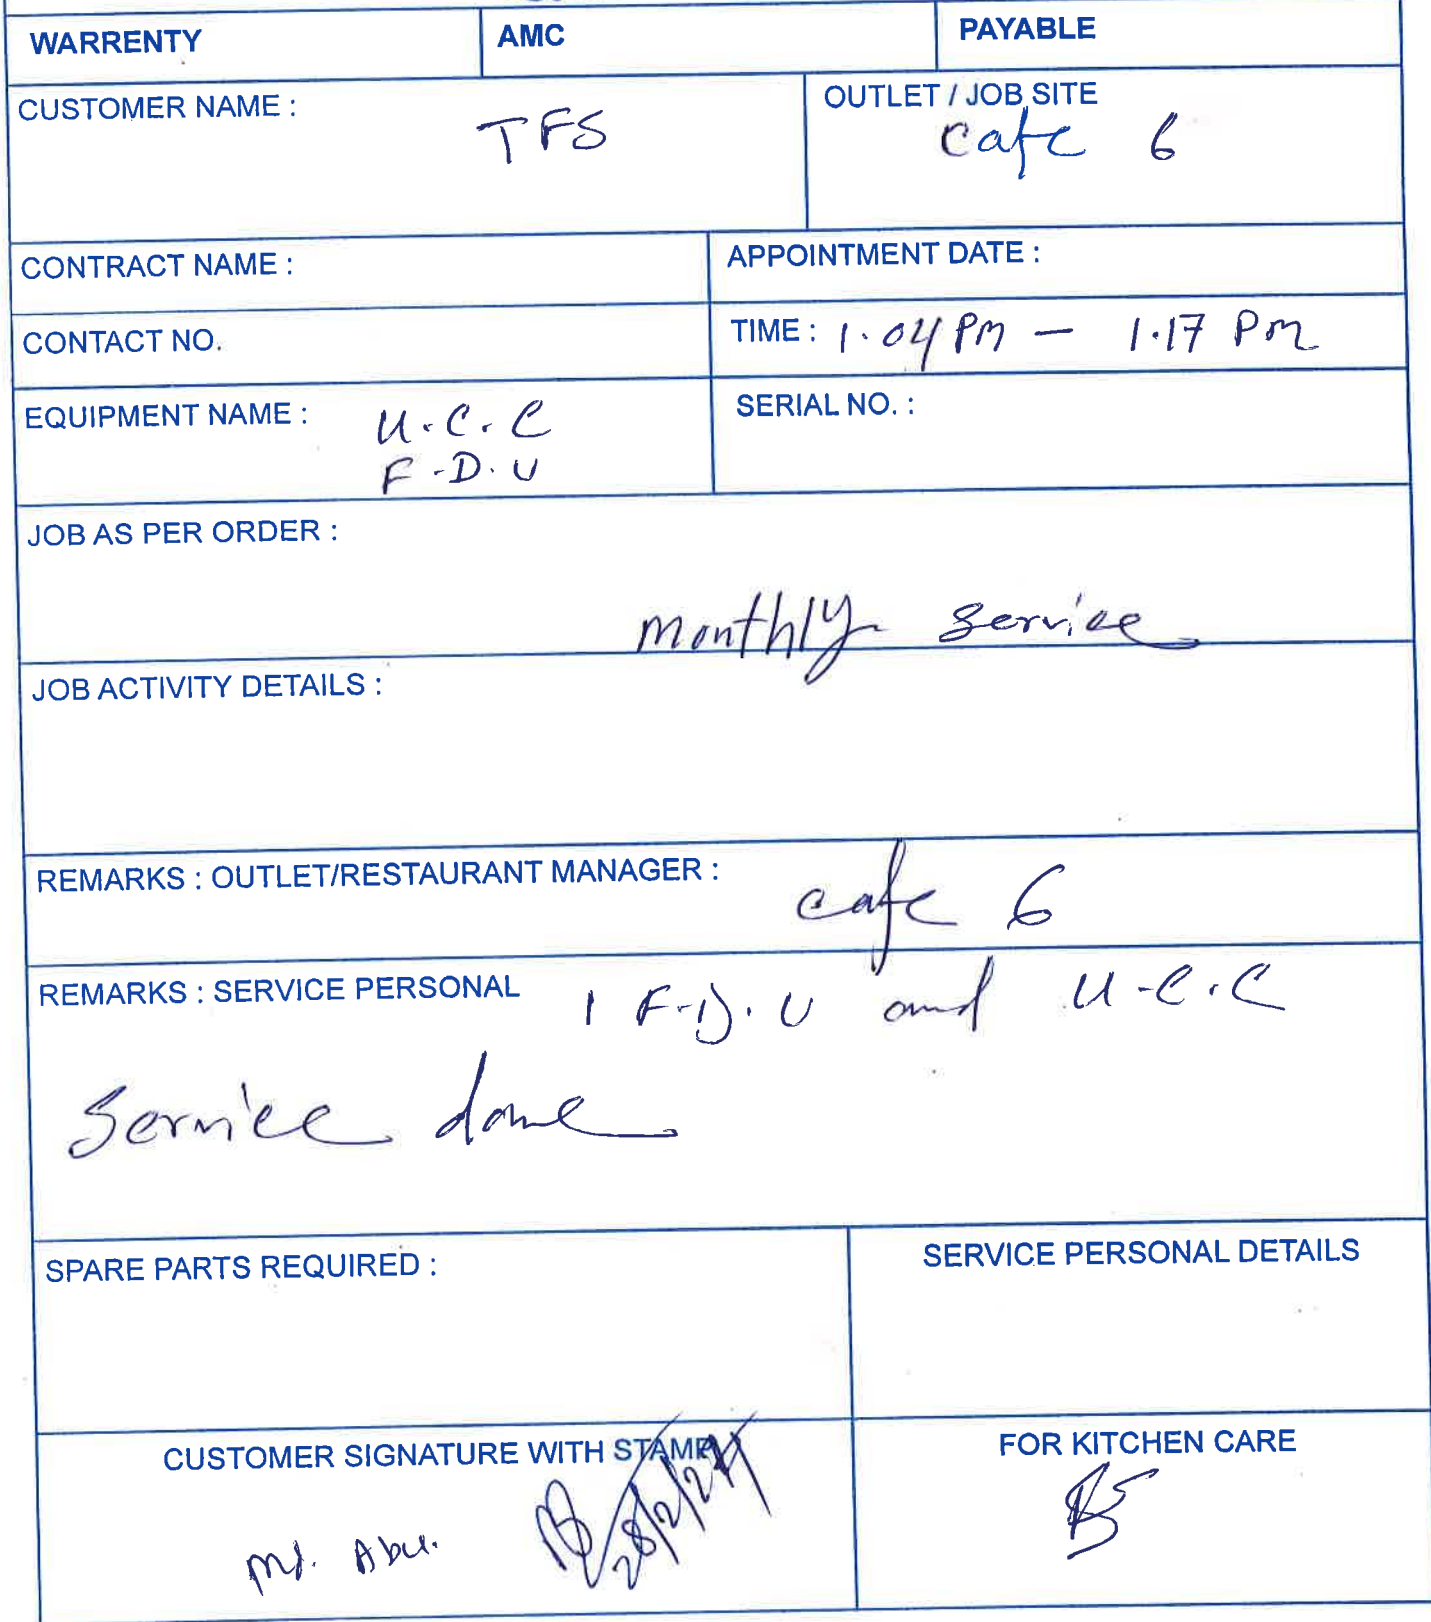 WARRENTY AMC PAYABLE
CUSTOMER NAME : TFS
OUTLET / JOB SITE
Cafe 6
CONTRACT NAME :
APPOINTMENT DATE :
CONTACT NO.
TIME : 1.04 PM — 1.17 PM
EQUIPMENT NAME : U.C.C
F.D.U
SERIAL NO. :
JOB AS PER ORDER :
monthly service
JOB ACTIVITY DETAILS :
REMARKS : OUTLET/RESTAURANT MANAGER : cafe 6
REMARKS : SERVICE PERSONAL 1 F.D.U and U.C.C
Service done
SPARE PARTS REQUIRED :
SERVICE PERSONAL DETAILS
CUSTOMER SIGNATURE WITH STAMP
Md. Abu. 28/2/24
FOR KITCHEN CARE